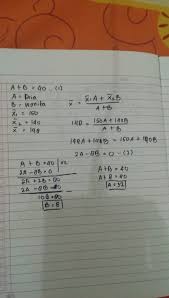 A + B = 40 ..(1)
A = Pria
B = Wanita
x̄₁ = 150
x̄₂ = 140
x̄ = 148
x̄ = x̄₁A + x̄₂B / A + B
148 = 150A + 140B / A + B
148A + 148B = 150A + 140B
2A - 8B = 0 ..(2)
A + B = 40 | x2
2A - 8B = 0
2A + 2B = 80
2A - 8B = 0
10B = 80
B = 8
A + B = 40
A + 8 = 40
A = 32